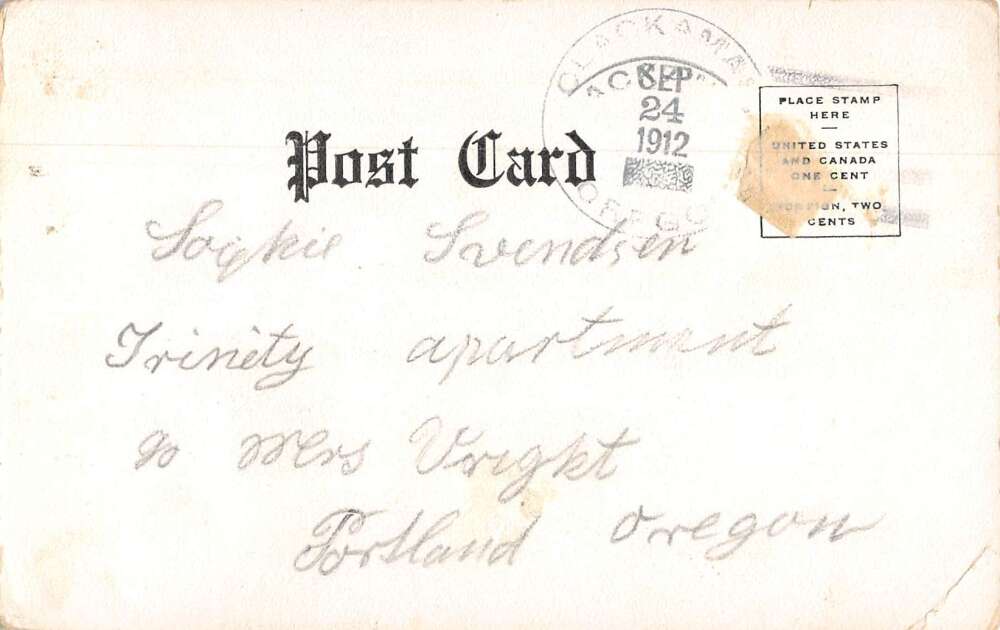 CLACKAMAS
SEP
24
1912
OREGO
PLACE STAMP
HERE
UNITED STATES
AND CANADA
ONE CENT
FOREIGN, TWO
CENTS
Post Card
Sophie Svendsen
Trinity apartment
Mrs Vrigkt
Portland oregon